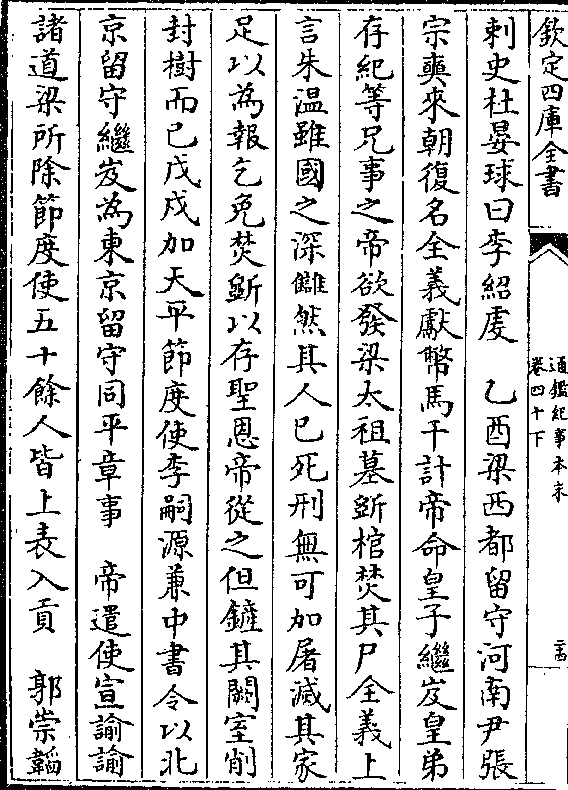 欽定四庫全書
通鑑紀事本末
卷四十下
二十四
刺史杜晏球曰李紹䖍　乙酉梁西都留守河南尹張
宗奭來朝復名全義獻幣馬千計帝命皇子繼岌皇弟
存紀等兄事之帝欲發梁太祖墓斵棺焚其尸全義上
言朱温雖國之深讎然其人已死刑無可加屠滅其家
足以為報乞免焚斵以存聖恩帝從之但鏟其闕室削
封樹而已戊戌加天平節度使李嗣源兼中書令以北
京留守繼岌為東京留守同平章事　帝遣使宣諭諭
諸道梁所除節度使五十餘人皆上表入貢　郭崇韜